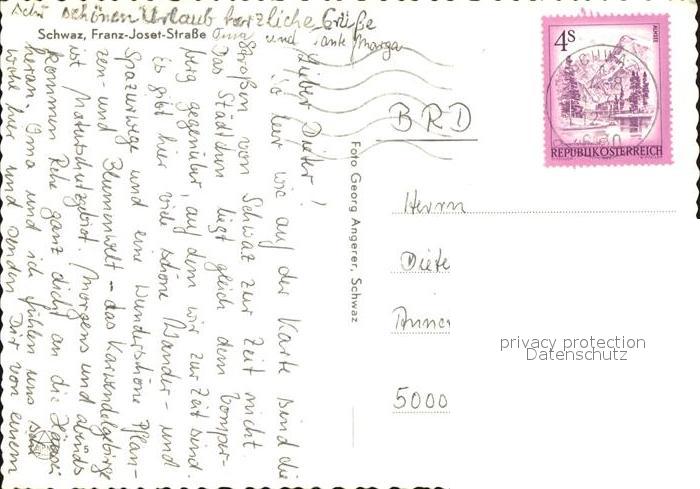 Lieber Dieter!
So leer wie auf der Karte sind die
Straßen von Schwaz zur Zeit nicht.
Das Städtchen liegt gleich dem Vomper-
berg gegenüber, auf dem wir zur Zeit sind.
Es gibt hier viele schöne Wander- und
Spazierwege und eine wunderschöne Pflan-
zen- und Blumenwelt - das Karwendelgebirge
ist Naturschutzgebiet. Morgens und abends
kommen Rehe ganz dicht an die Häuser
heran. Oma und ich fühlen uns sehr
wohl hier und senden Dir von einem
sehr schönen Urlaub herzliche Grüße
Oma und Tante Marga
Schwaz, Franz-Josef-Straße
Foto Georg Angerer, Schwaz
4S
REPUBLIK ÖSTERREICH
SCHWAZ
BRD
Herrn
Diete
5000
privacy protection
Datenschutz